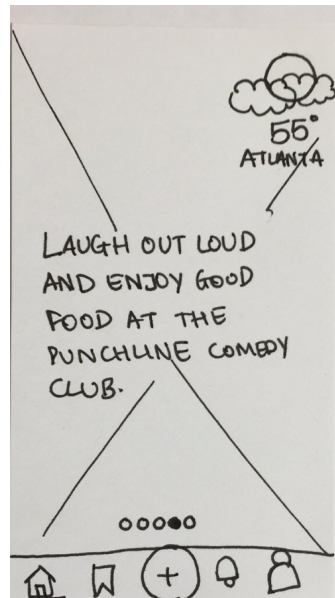 55°
ATLANTA
LAUGH OUT LOUD
AND ENJOY GOOD
FOOD AT THE
PUNCHLINE COMEDY
CLUB.